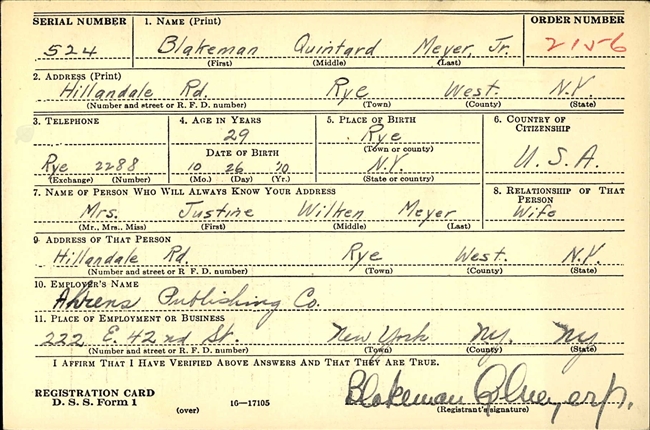 SERIAL NUMBER 1. NAME (Print) ORDER NUMBER
524 Blakeman Quintard Meyer, Jr. 2156
(First) (Middle) (Last)
2. ADDRESS (Print)
Hillandale Rd. Rye West. N.Y.
(Number and street or R. F. D. number) (Town) (County) (State)
3. TELEPHONE 4. AGE IN YEARS 5. PLACE OF BIRTH 6. COUNTRY OF CITIZENSHIP
29 Rye
DATE OF BIRTH (Town or county) U.S.A.
Rye 2288 10 26 '10 N.Y.
(Exchange) (Number) (Mo.) (Day) (Yr.) (State or country)
7. NAME OF PERSON WHO WILL ALWAYS KNOW YOUR ADDRESS 8. RELATIONSHIP OF THAT PERSON
Mrs. Justine Wilken Meyer Wife
(Mr., Mrs., Miss) (First) (Middle) (Last)
9. ADDRESS OF THAT PERSON
Hillandale Rd. Rye West. N.Y.
(Number and street or R. F. D. number) (Town) (County) (State)
10. EMPLOYER'S NAME
Ahrens Publishing Co.
11. PLACE OF EMPLOYMENT OR BUSINESS
222 E. 42nd St. New York NY. NY
(Number and street or R. F. D. number) (Town) (County) (State)
I AFFIRM THAT I HAVE VERIFIED ABOVE ANSWERS AND THAT THEY ARE TRUE.
REGISTRATION CARD Blakeman Q Meyer Jr.
D. S. S. Form 1 (over) 16—17105 (Registrant's signature)